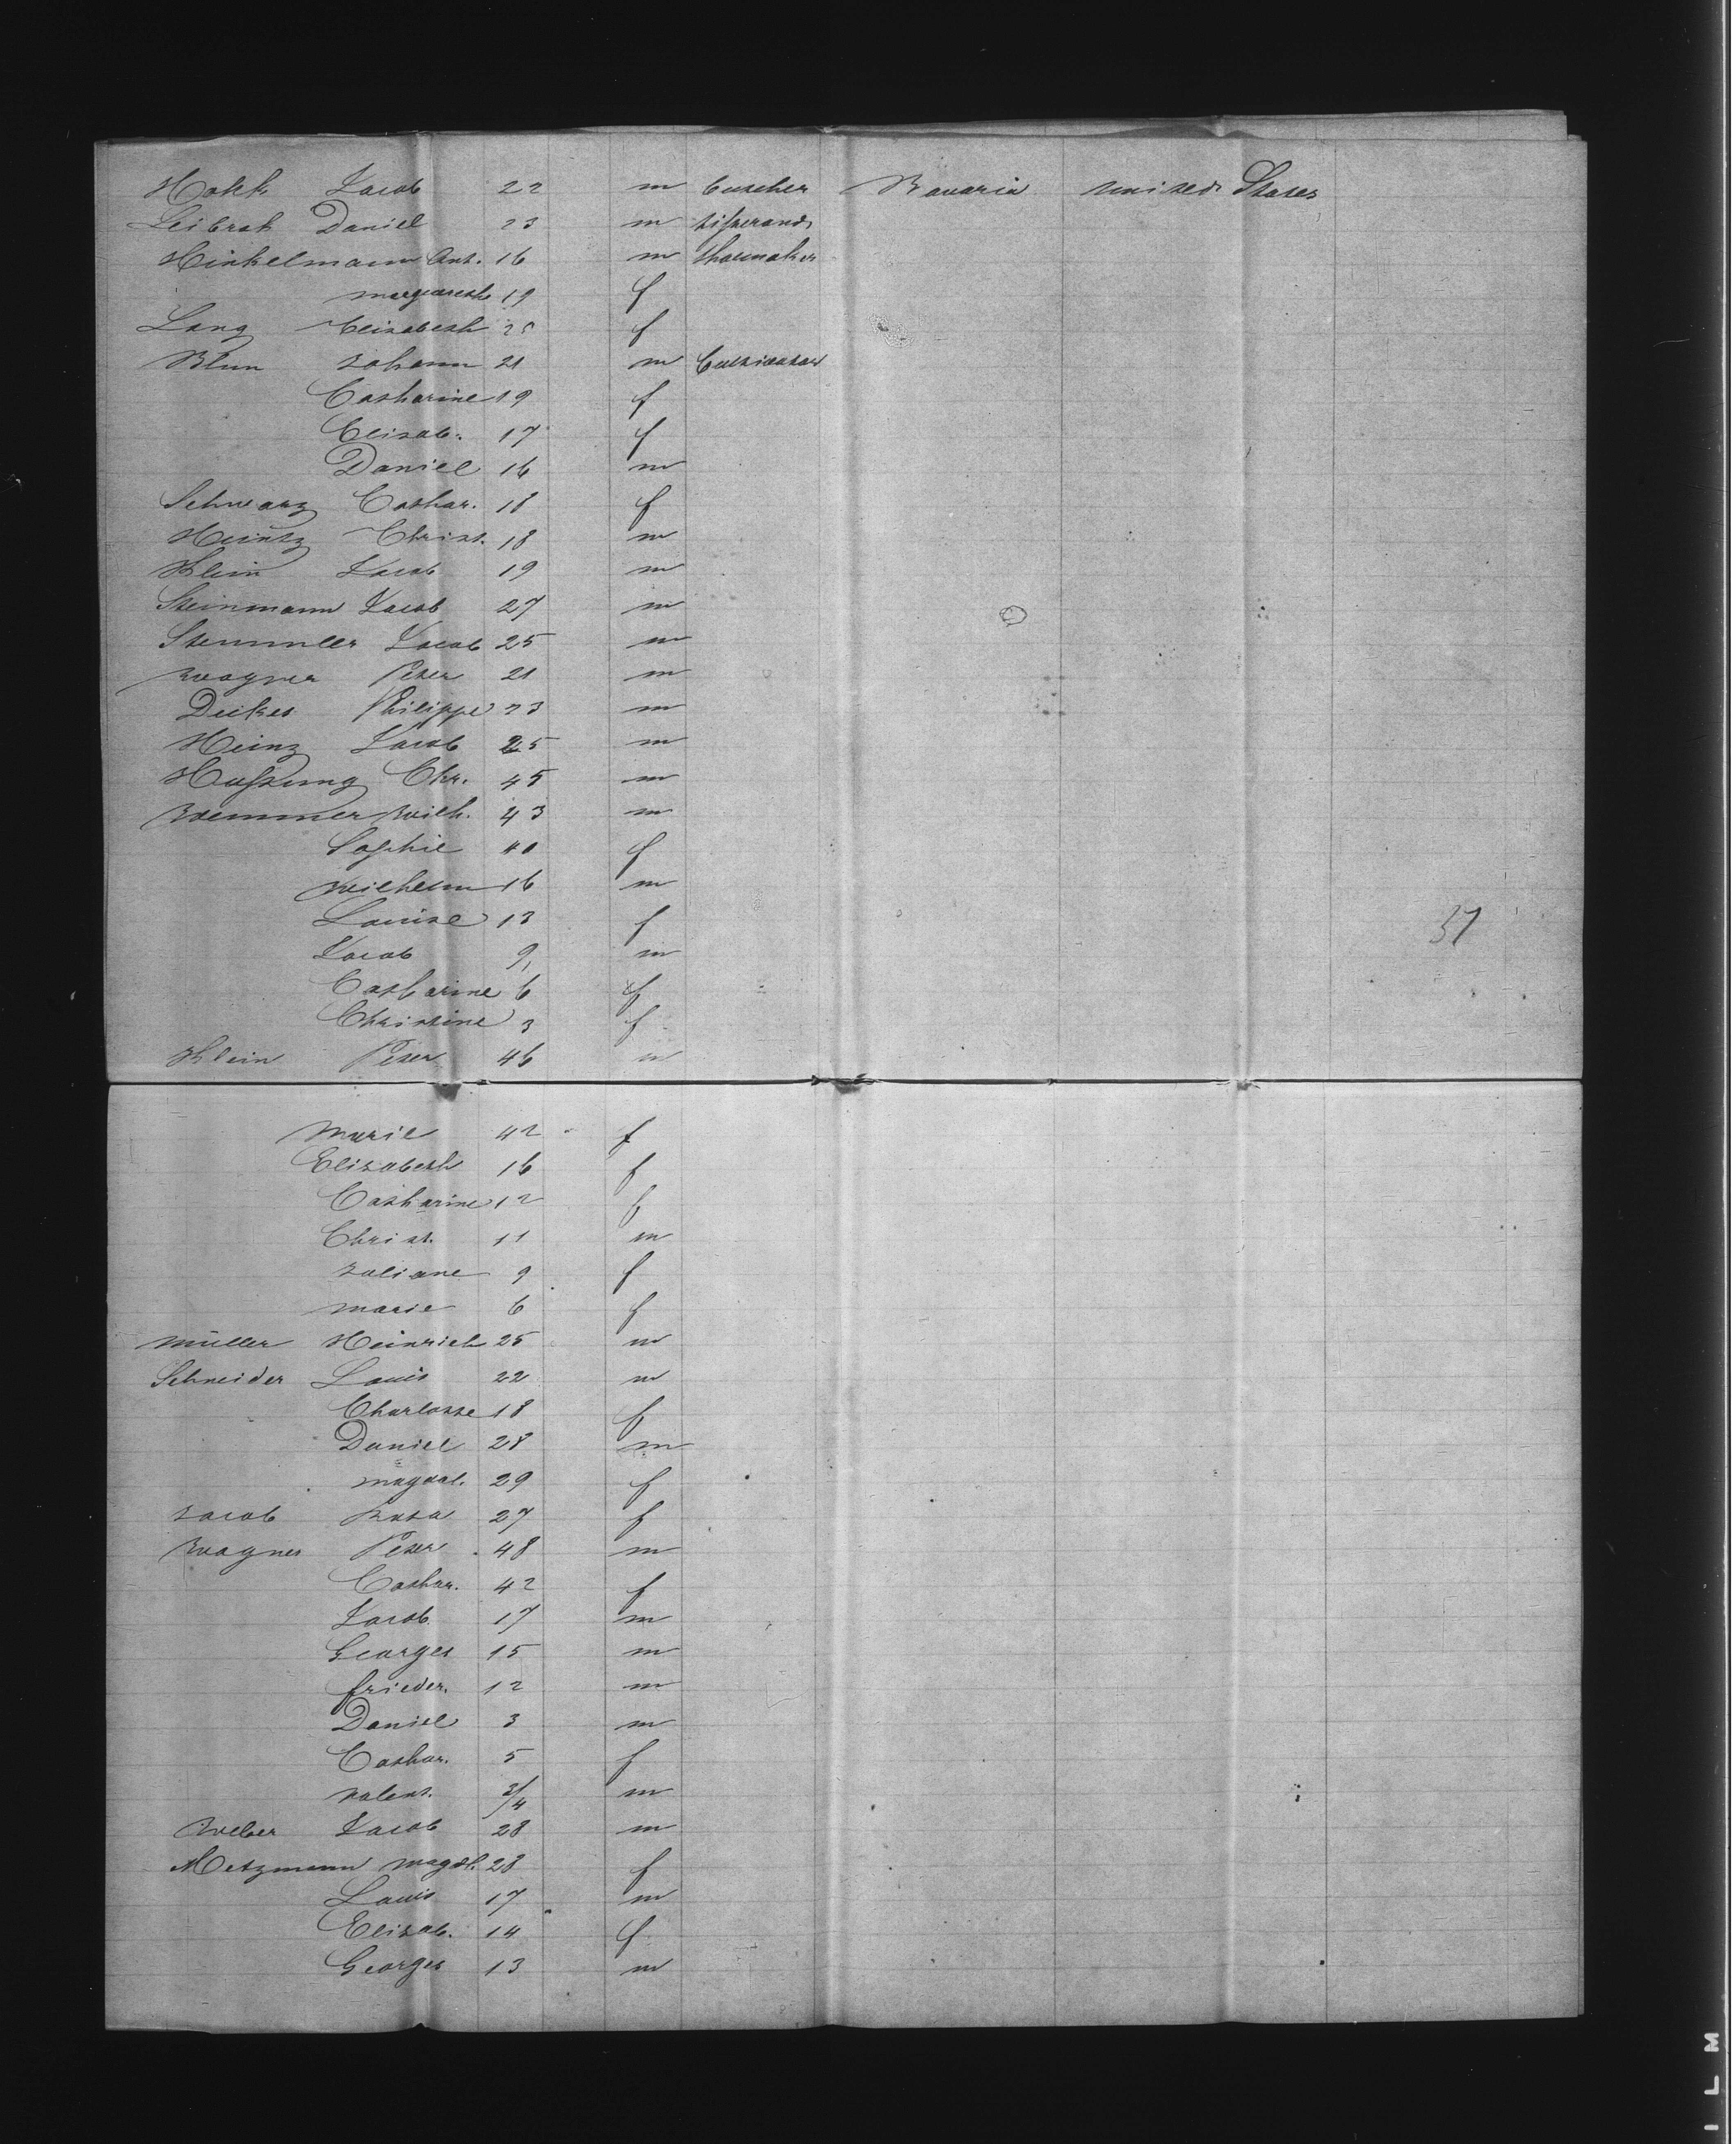 Hokk Jacob 22 m Butcher Bavaria United States
Leibrok Daniel 23 m
Hinkelmann Ant. 16 m Shoemaker
Margareth 19 f
Lang Elisabeth f
Blum Johann 21 m Cultivator
Catharine 19 f
Elisab. 17 f
Daniel 16 m
Schwarz Cathar. 18 f
Heintz Christ. 18 m
Klein Jacob 19 m
Steinmann Jacob 27 m
Stemmler Jacob 25 m
Wagner Peter 21 m
Philippe 23 m
Heinz Jacob 25 m
Hussung Chr. 45 m
Wemmer Wilh. 43 m
Sophie 40 f
Wilhelm 16 m
Louise 13 f
Jacob 9 m
Catharine 6 f
Christine 3 f
Klein Peter 46 m
37
Marie 42 f
Elisabeth 16 f
Catharine 12 f
Christ. 11 m
Juliane 9 f
Marie 6 f
Müller Heinrich 25 m
Schneider Louis 22 m
Charlotte 18 f
Daniel 28 m
Magdal. 29 f
Jacob Rosa 27 f
Wagner Peter 48 m
Cathar. 42 f
Jacob 17 m
Georges 15 m
Frieder. 12 m
Daniel 3 m
Cathar. 5 f
Valent. 3/4 m
Weber Jacob 28 m
Metzmann Magdl. 28 f
Louis 17 m
Elisab. 14 f
Georges 13 m
I L M